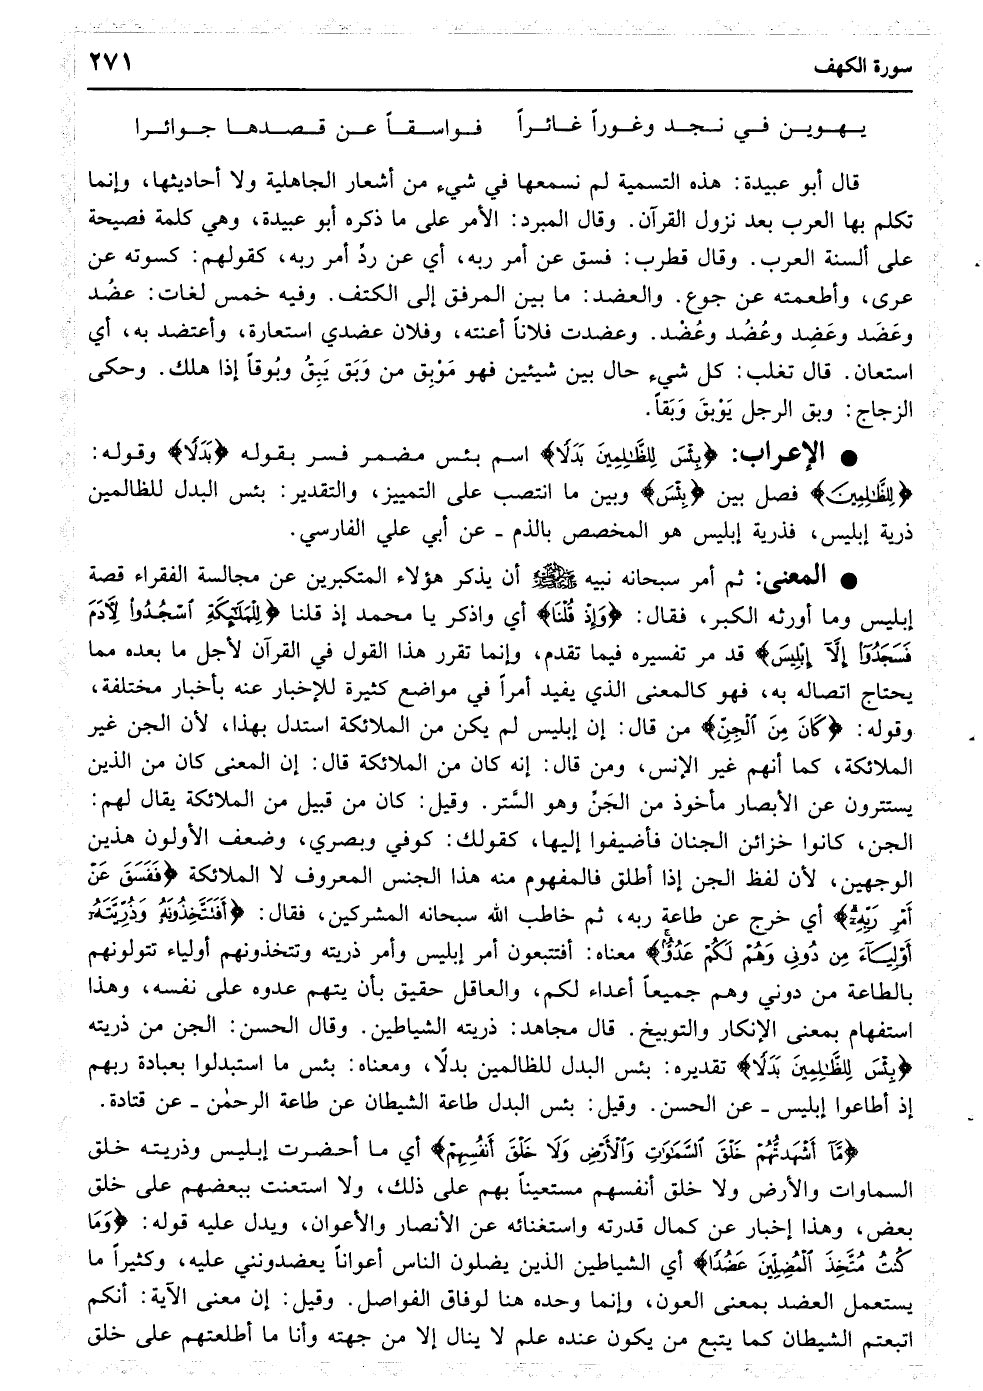 سورة الكهف ٢٧١
يـهـويـن فـي نـجـد وغـوراً غـائـراً فـواسـقـاً عـن قـصـدهـا جـوائـرا
قال أبو عبيدة: هذه التسمية لم نسمعها في شيء من أشعار الجاهلية ولا أحاديثها، وإنما
تكلم بها العرب بعد نزول القرآن. وقال المبرد: الأمر على ما ذكره أبو عبيدة، وهي كلمة فصيحة
على ألسنة العرب. وقال قطرب: فسق عن أمر ربه، أي عن ردِّ أمر ربه، كقولهم: كسوته عن
عرى، وأطعمته عن جوع. والعضد: ما بين المرفق إلى الكتف. وفيه خمس لغات: عضُد
وعَضَد وعَضِد وعُضُد وعُضْد. وعضدت فلاناً أعنته، وفلان عضدي استعارة، وأعتضد به، أي
استعان. قال تغلب: كل شيء حال بين شيئين فهو مَوْبِق من وَبَق يَبِقُ وبُوقاً إذا هلك. وحكى
الزجاج: وبق الرجل يَوْبقَ وَبَقاً.
● الإعراب: ﴿بِئْسَ لِلظَّٰلِمِينَ بَدَلًا﴾ اسم بئس مضمر فسر بقوله ﴿بَدَلًا﴾ وقوله:
﴿لِلظَّٰلِمِينَ﴾ فصل بين ﴿بِئْسَ﴾ وبين ما انتصب على التمييز، والتقدير: بئس البدل للظالمين
ذرية إبليس، فذرية إبليس هو المخصص بالذم ـ عن أبي علي الفارسي.
● المعنى: ثم أمر سبحانه نبيه ﷺ أن يذكر هؤلاء المتكبرين عن مجالسة الفقراء قصة
إبليس وما أورثه الكبر، فقال: ﴿وَإِذْ قُلْنَا﴾ أي واذكر يا محمد إذ قلنا ﴿لِلْمَلَٰٓئِكَةِ ٱسْجُدُوا۟ لِـَٔادَمَ
فَسَجَدُوٓا۟ إِلَّآ إِبْلِيسَ﴾ قد مر تفسيره فيما تقدم، وإنما تقرر هذا القول في القرآن لأجل ما بعده مما
يحتاج اتصاله به، فهو كالمعنى الذي يفيد أمراً في مواضع كثيرة للإخبار عنه بأخبار مختلفة،
وقوله: ﴿كَانَ مِنَ ٱلْجِنِّ﴾ من قال: إن إبليس لم يكن من الملائكة استدل بهذا، لأن الجن غير
الملائكة، كما أنهم غير الإنس، ومن قال: إنه كان من الملائكة قال: إن المعنى كان من الذين
يستترون عن الأبصار مأخوذ من الجَنِّ وهو السَّتر. وقيل: كان من قبيل من الملائكة يقال لهم:
الجن، كانوا خزائن الجنان فأضيفوا إليها، كقولك: كوفي وبصري، وضعف الأولون هذين
الوجهين، لأن لفظ الجن إذا أطلق فالمفهوم منه هذا الجنس المعروف لا الملائكة ﴿فَفَسَقَ عَنْ
أَمْرِ رَبِّهِۦٓ﴾ أي خرج عن طاعة ربه، ثم خاطب الله سبحانه المشركين، فقال: ﴿أَفَتَتَّخِذُونَهُۥ وَذُرِّيَّتَهُۥٓ
أَوْلِيَآءَ مِن دُونِى وَهُمْ لَكُمْ عَدُوٌّۢ﴾ معناه: أفتتبعون أمر إبليس وأمر ذريته وتتخذونهم أولياء تتولونهم
بالطاعة من دوني وهم جميعاً أعداء لكم، والعاقل حقيق بأن يتهم عدوه على نفسه، وهذا
استفهام بمعنى الإنكار والتوبيخ. قال مجاهد: ذريته الشياطين. وقال الحسن: الجن من ذريته
﴿بِئْسَ لِلظَّٰلِمِينَ بَدَلًا﴾ تقديره: بئس البدل للظالمين بدلًا، ومعناه: بئس ما استبدلوا بعبادة ربهم
إذ أطاعوا إبليس ـ عن الحسن. وقيل: بئس البدل طاعة الشيطان عن طاعة الرحمٰن ـ عن قتادة.
﴿مَّآ أَشْهَدتُّهُمْ خَلْقَ ٱلسَّمَٰوَٰتِ وَٱلْأَرْضِ وَلَا خَلْقَ أَنفُسِهِمْ﴾ أي ما أحضرت إبليس وذريته خلق
السماوات والأرض ولا خلق أنفسهم مستعيناً بهم على ذلك، ولا استعنت ببعضهم على خلق
بعض، وهذا إخبار عن كمال قدرته واستغنائه عن الأنصار والأعوان، ويدل عليه قوله: ﴿وَمَا
كُنتُ مُتَّخِذَ ٱلْمُضِلِّينَ عَضُدًا﴾ أي الشياطين الذين يضلون الناس أعواناً يعضدونني عليه، وكثيراً ما
يستعمل العضد بمعنى العون، وإنما وحده هنا لوفاق الفواصل. وقيل: إن معنى الآية: أنكم
اتبعتم الشيطان كما يتبع من يكون عنده علم لا ينال إلا من جهته وأنا ما أطلعتهم على خلق